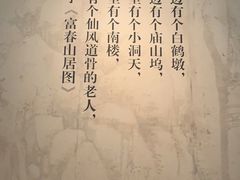 有个白鹤墩,
有个庙山坞,
有个小洞天,
有个南楼,
有个仙风道骨的老人,
《富春山居图》